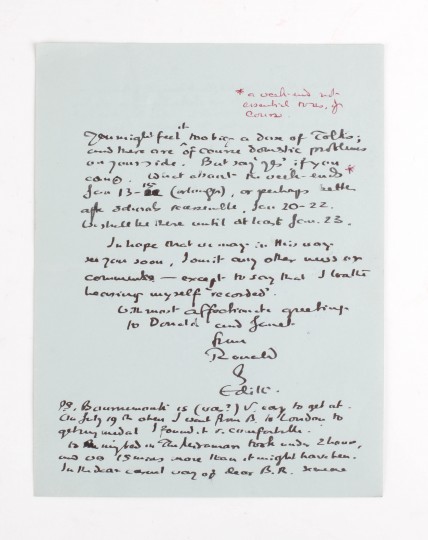 * a week-end not
essential to us, of
course.
You might feel it too big a dose of Tolks;
and there are of course domestic problems
on your side. But say 'yes' if you
can. What about the week-ends *
Jan 13-15 (or longer), or perhaps better
after schools reassemble, Jan 20-22.
We shall be there until at least Jan. 23.
In hope that we may in this way
see you soon, I omit any other news or
comments — except to say that I loathe
hearing myself 'recorded'.
With most affectionate greetings
to Donald and Janet
from
Ronald
&
Edith.
PS. Bournemouth is (via?) v. easy to get at.
On July 19th when I went from B. to London to
get my medal I found it v. comfortable.
in the Miraman took under 2 hours,
and was 15 mins more than it might have been.
In the dear casual way of dear B.R. someone